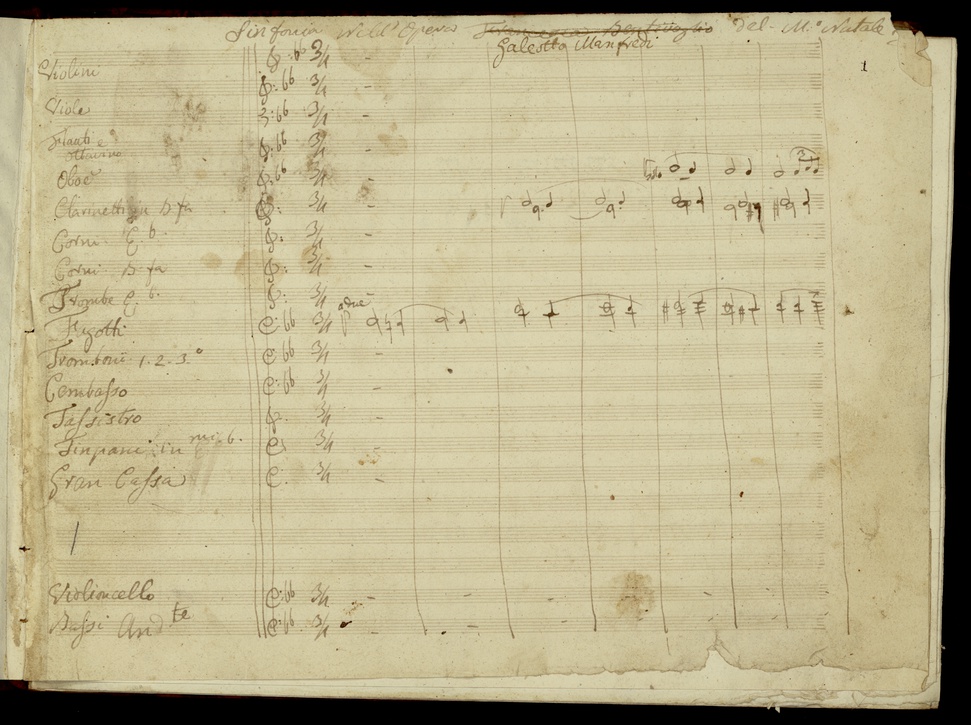 Sinfonia Nell'Opera Francesca Bentivoglio Del M.o Natale
Galeotto Manfredi
1
Violini
Viole
Flauti e
ottavino
Oboe
Solo
Clarinetti in B fa
Corni E b.
Corni B fa
Trombe E b.
a due
Fagotti
Tromboni 1. 2. 3.o
Cembasso
Tassistro
Timpani in mi b.
Gran Cassa
Violoncello
Bassi And te